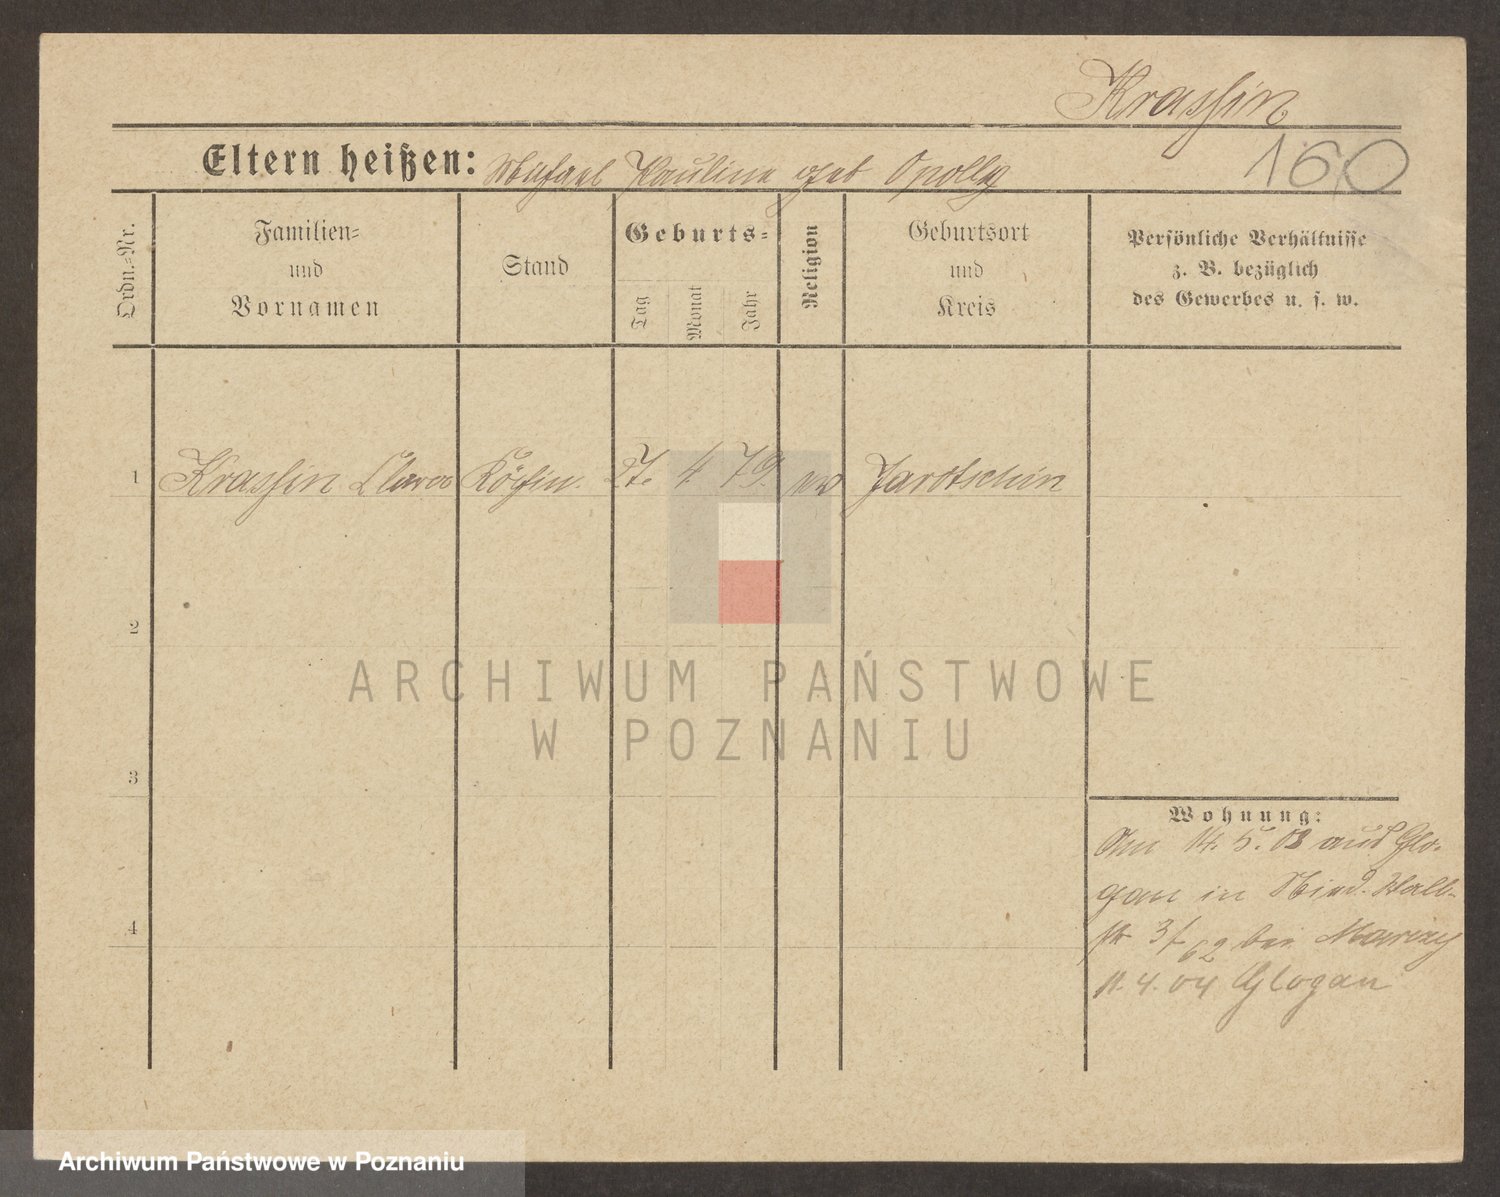 Krassin
160
Eltern heißen: Michael Pauline geb Opolly
Ordn.-Nr.
Familien- und Vornamen
Stand
Geburts-
Tag
Monat
Jahr
Religion
Geburtsort und Kreis
Persönliche Verhältnisse
z. B. bezüglich
des Gewerbes u. s. w.
1 Krassin Clara Köchin 27. 4 79. ev Jarotschin
2
3
4
Wohnung:
Am 14. 5. 03 aus Glo-
gan in Nied. Wall-
str 3/62 bei
11. 4. 04 Glogau
ARCHIWUM PAŃSTWOWE
W POZNANIU
Archiwum Państwowe w Poznaniu